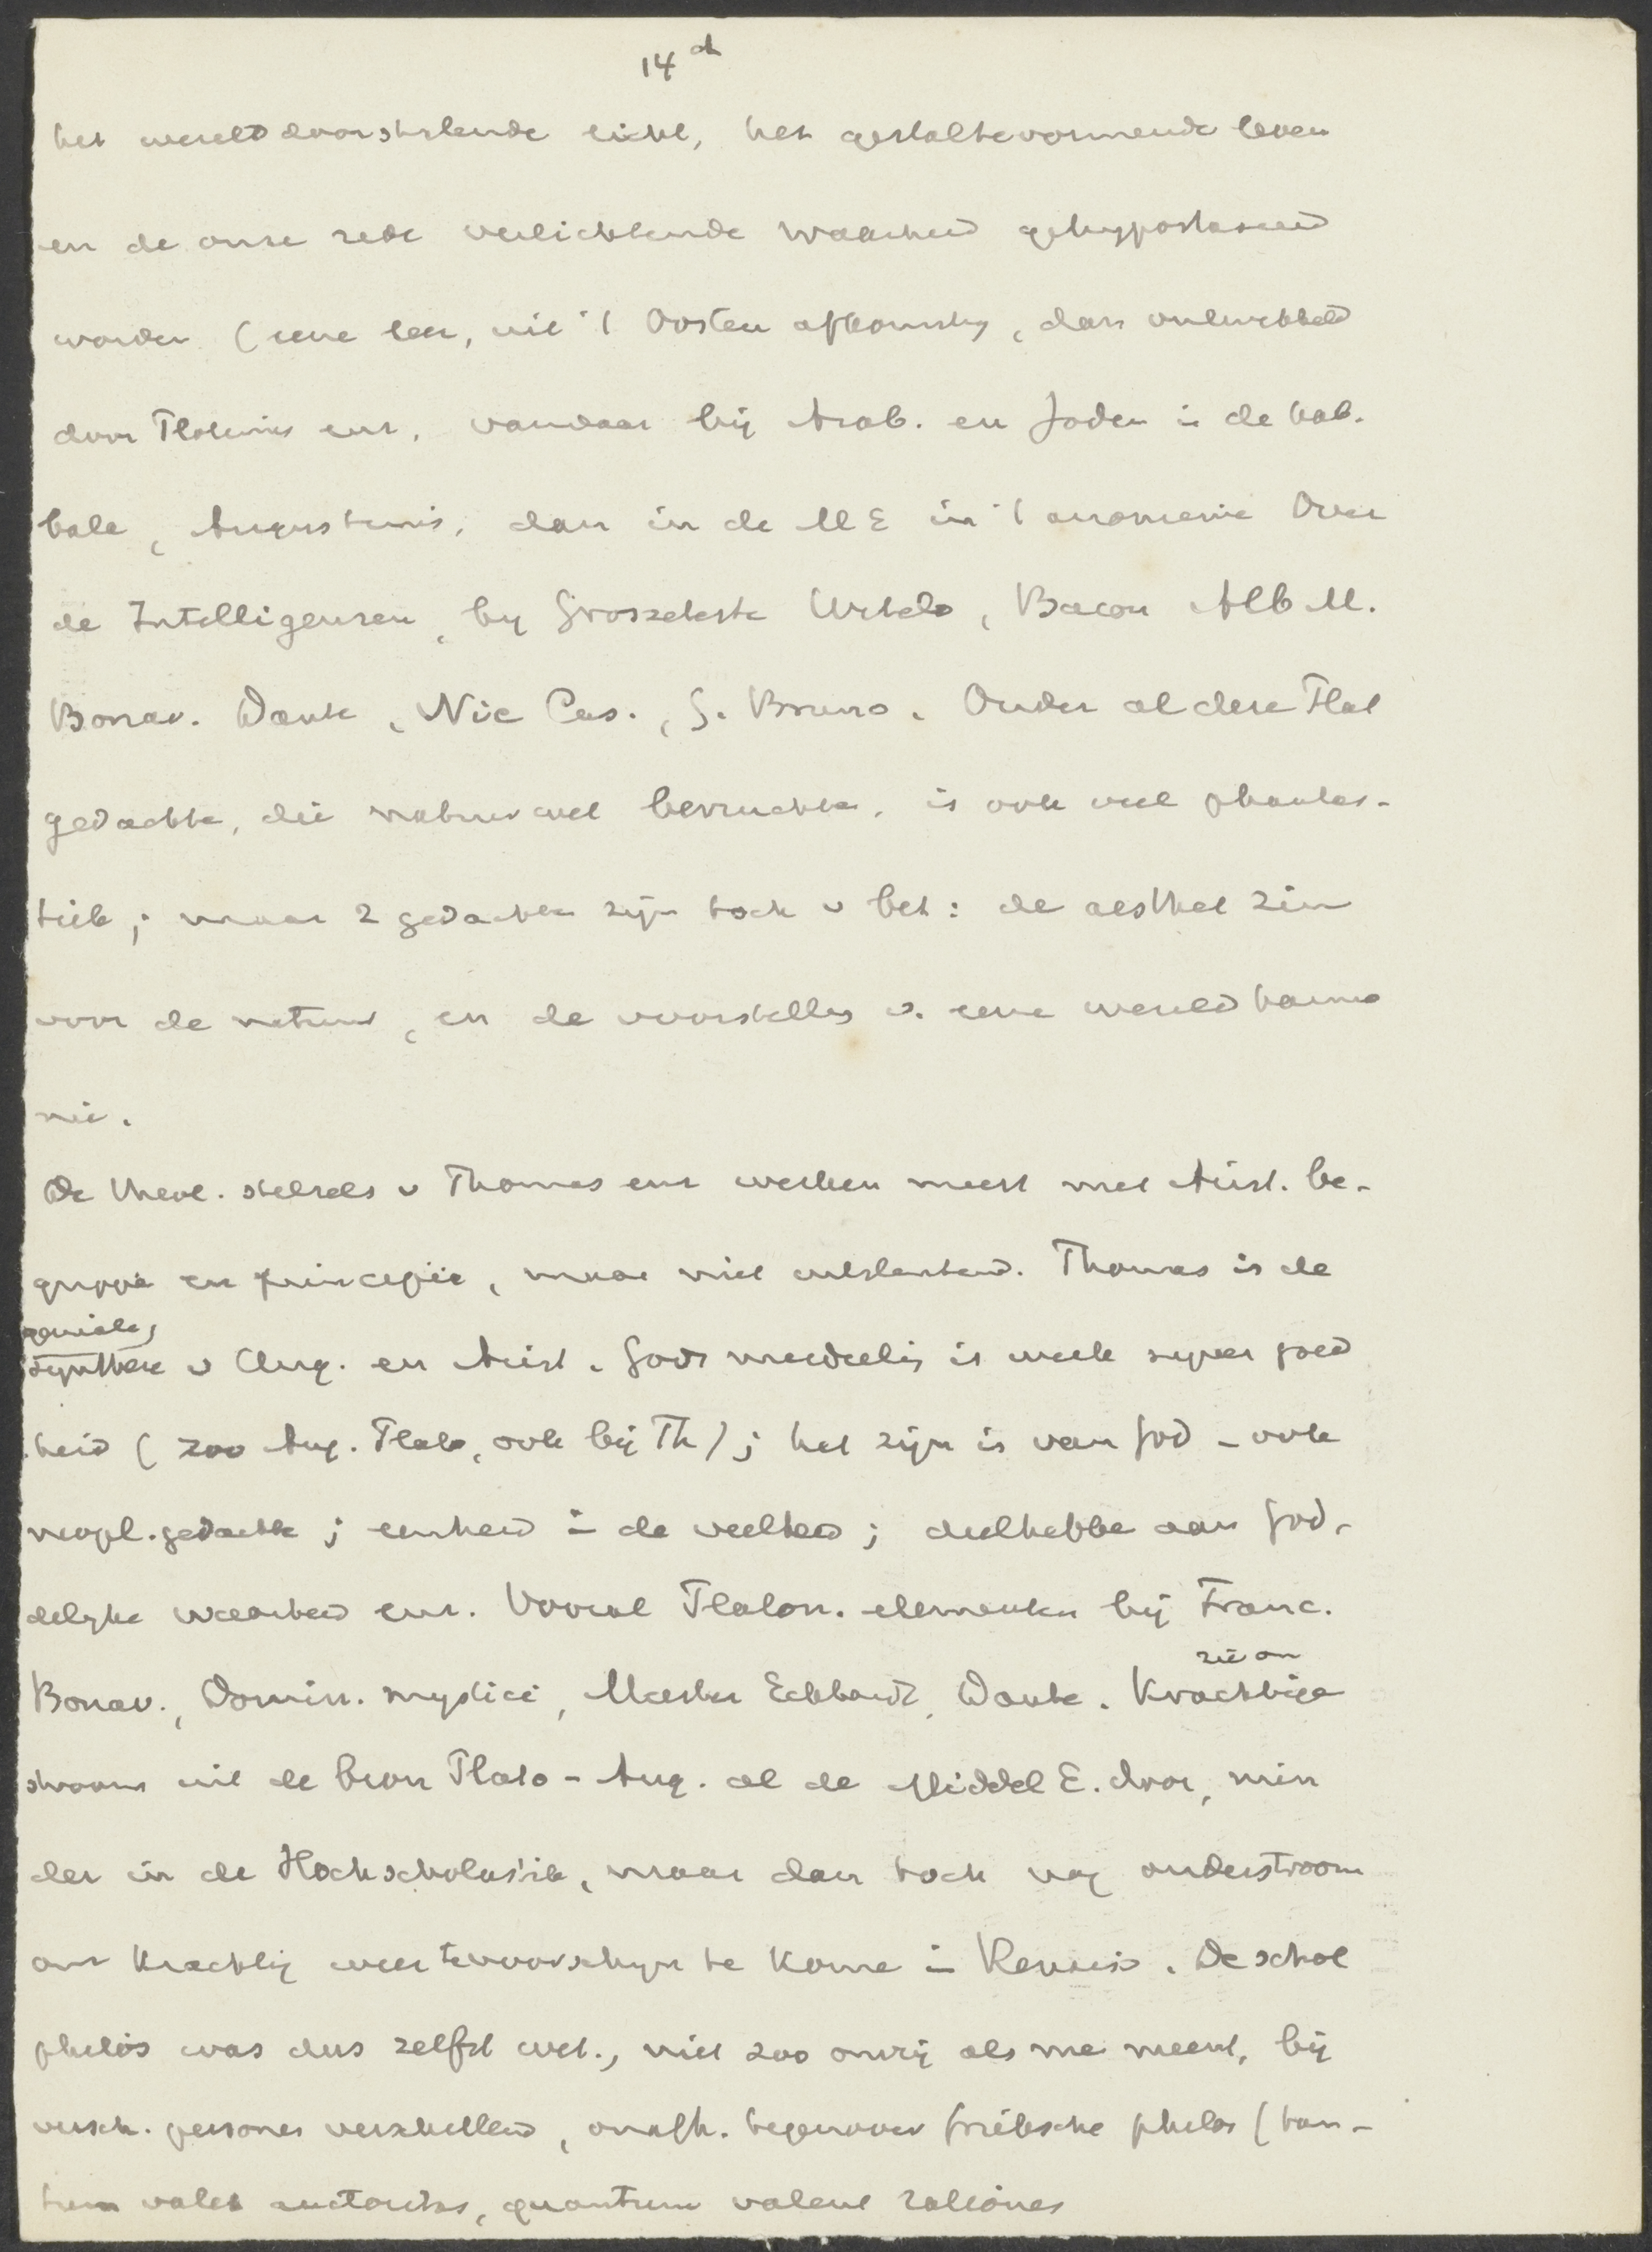 14 d
het wereld doorstralende licht, het gestaltevormende leven
en de onze rede verlichtende waarheid gehypostaseerd
worden (eene leer, uit 't Oosten afkomstig, dan ontwikkeld
door Plotinus enz., vandaar bij Arab. en Joden in de kab-
bala, Augustinus, dan in de ME in 't anonieme Over
de Intelligenzen, by Groszeteste Witelo, Bacon Alb M.
Bonav. Dante, Nic Cus., G. Bruno. Onder al deze Plat
gedachte, die natuurwet bevruchtte, is ook veel phantas-
tiek; maar 2 gedachten zijn toch v bet: de aesthet zin
voor de natuur, en de voorstelling v. eene wereldharmo
nie.
De theol. stelsels v Thomas enz werken meest met Arist. be-
grippe en principiën, maar niet uitsluitend. Thomas is de
geniale,
synthese v Aug. en Arist. Gods mededeelg is welk super goed
heid (zoo Aug. Plato, ook bij Th); het zijn is van God - ook
neopl. gedachte; eenheid in de veelheid; deelhebbe aan god-
delyke waarheid enz. Vooral Platon. elementen bij Franc.
Bonav., Domin. mystici, Meester Eckhardt, Dante.
zie om
Krachtige
stroom uit de bron Plato - Aug. al de Middel E. door, min
der in de Hochscholastik, maar dan toch nog onderstroom
om krachtig weer tevoorschijn te kome in Renaiss. De schol
philos was dus zelfst wet., niet zoo onvrij als me meent, bij
versch. personen verschillend, onafh. tegenover Grieksche philos (tan-
tum valet auctoritas, quantum valent rationes